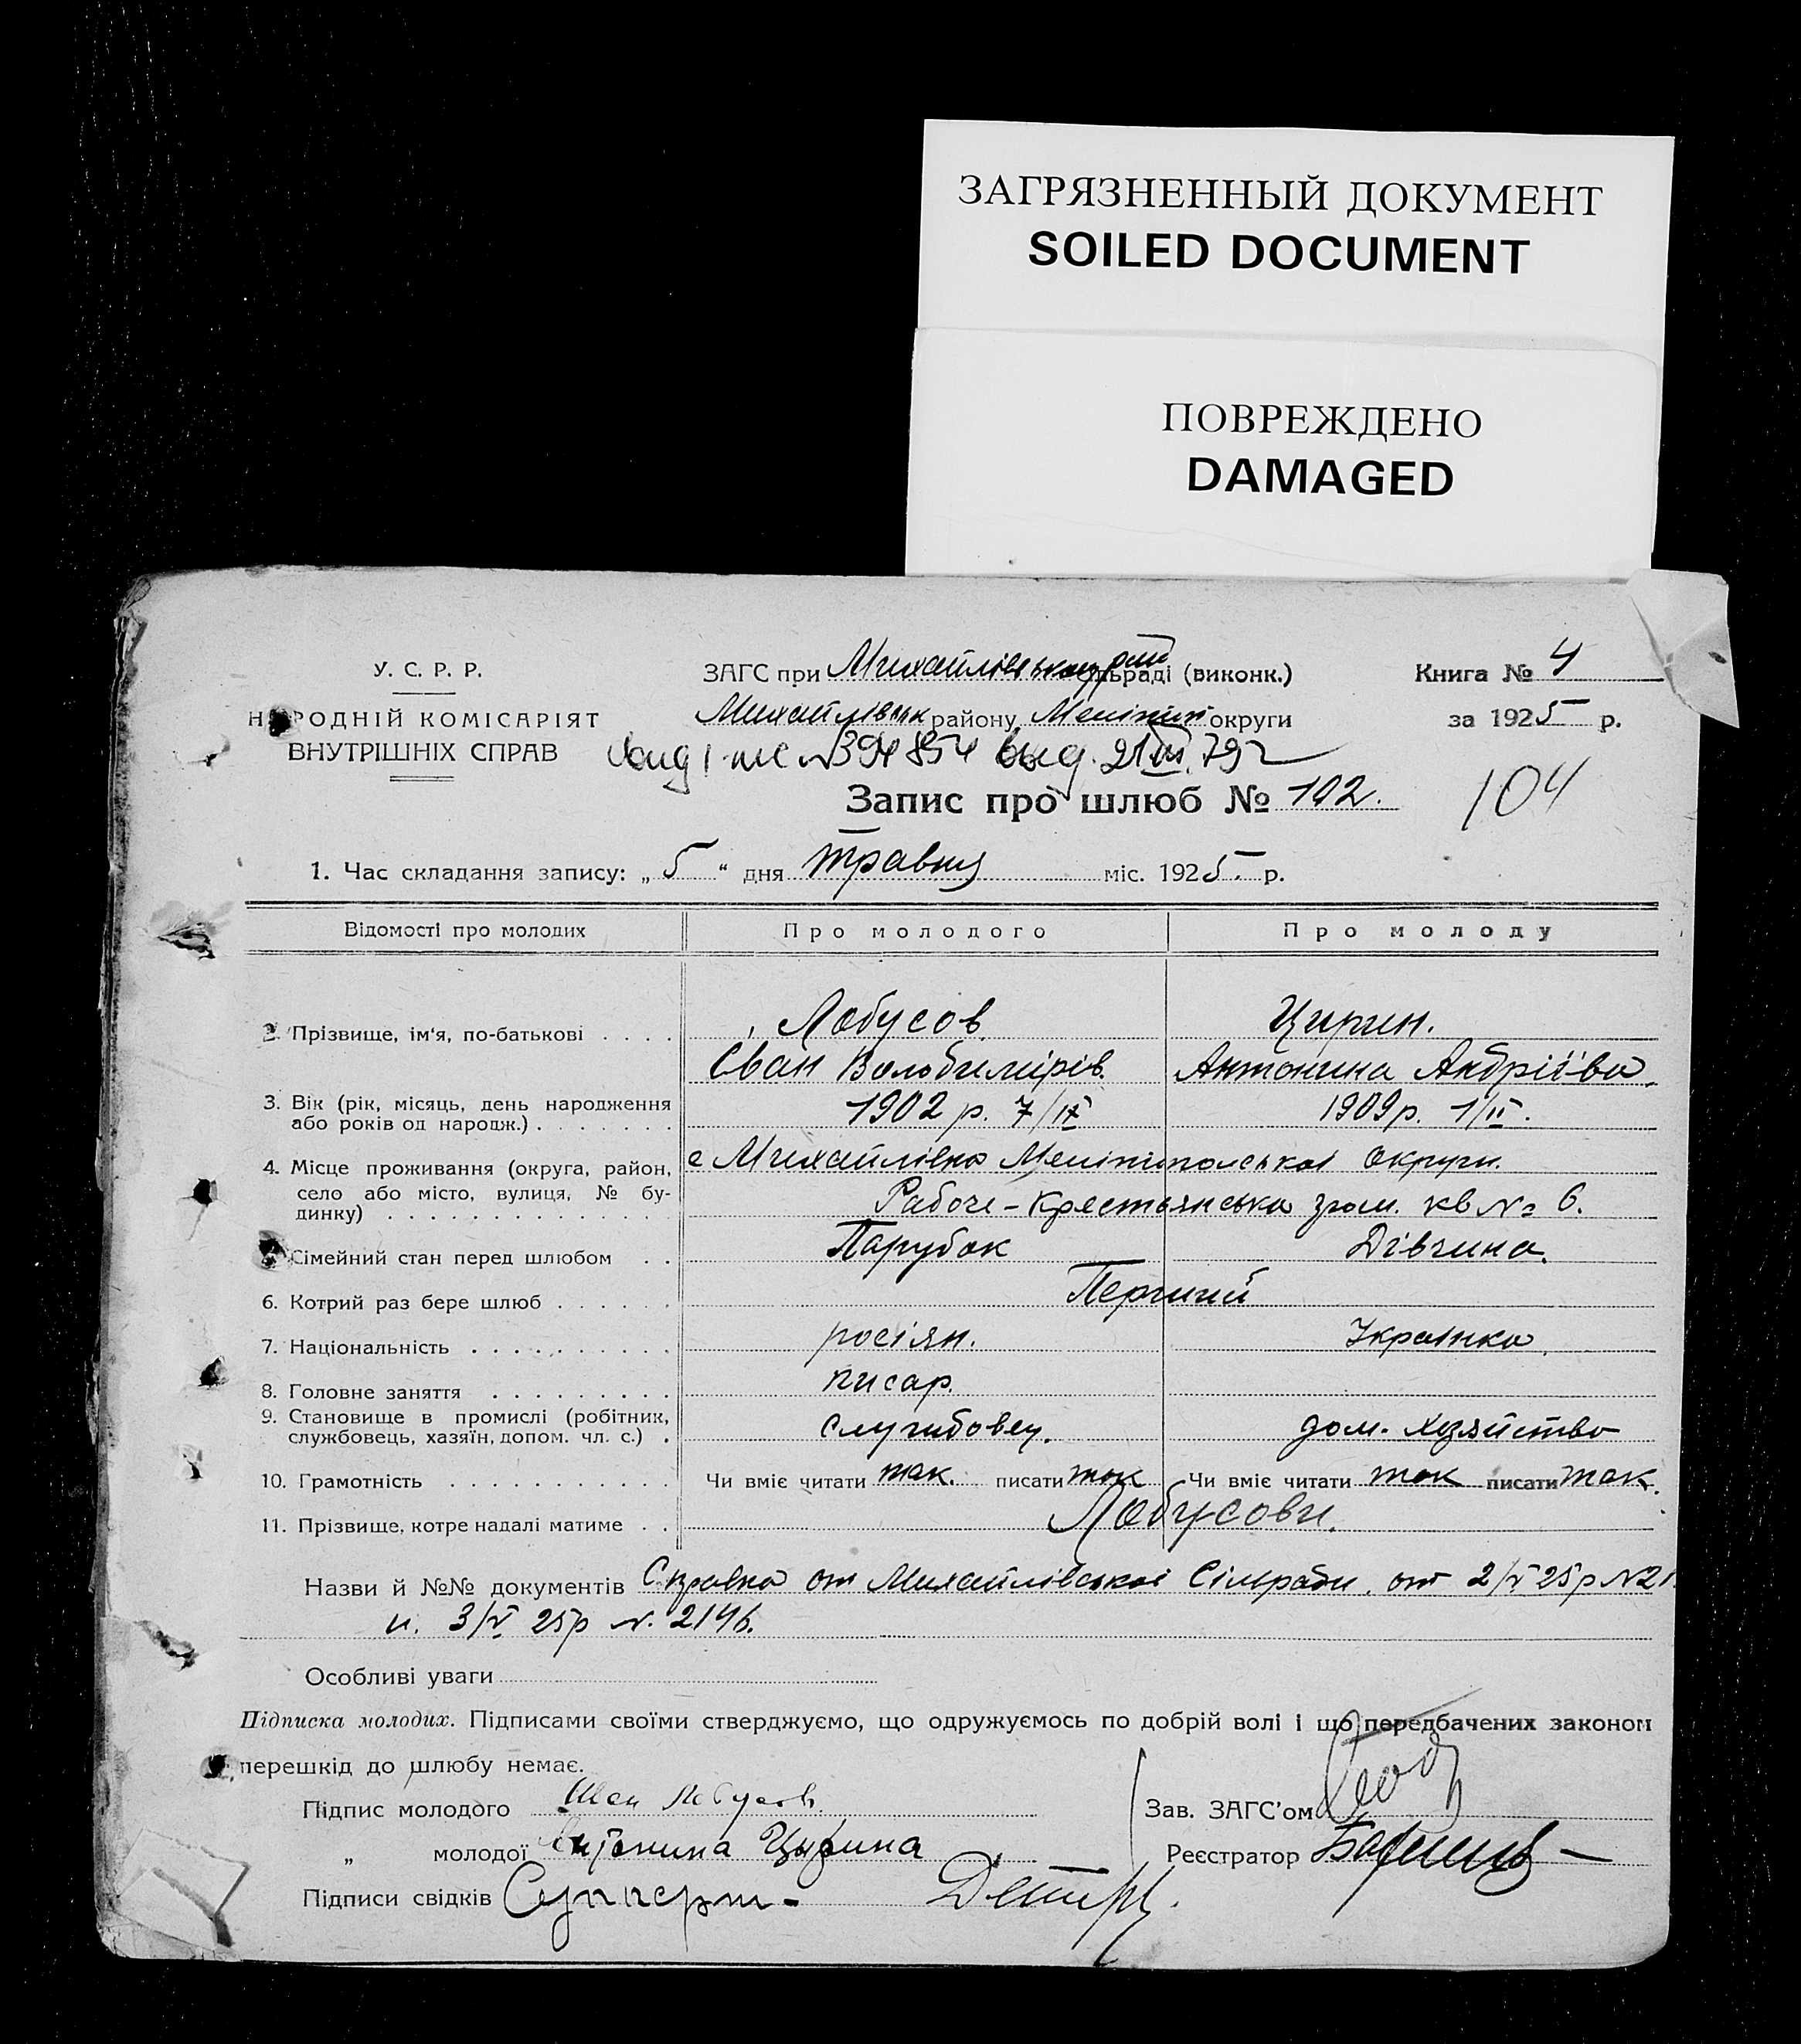 ЗАГРЯЗНЕННЫЙ ДОКУМЕНТ
SOILED DOCUMENT
ПОВРЕЖДЕНО
DAMAGED
У. С. Р. Р.
НАРОДНІЙ КОМІСАРІЯТ
ВНУТРІШНІХ СПРАВ
ЗАГС при Михайлівськ рай (виконк.)
Михайлівськ району Меліт округи
Книга № 4
за 1925 р.
№ 394854 выд. 21 79 г
Запис про шлюб № 102.
104
1. Час складання запису: „ 5 “ дня травня міс. 1925. р.
Відомості про молодих Про молодого Про молоду
2. Прізвище, ім'я, по-батькові . . . . Лобусов Цирин.
Іван Володимирів. Антонина Андріїва.
3. Вік (рік, місяць, день народження або років од народж.) . . . . . . . 1902 р. 7/IX 1909 р. 1/II.
4. Місце проживання (округа, район, село або місто, вулиця, № будинку) . . . с Михайлівка Мелітопольскоі округи.
Рабоче-Крестьянська гром. кв № 6.
5. Сімейний стан перед шлюбом . . Парубок Дівчина.
6. Котрий раз бере шлюб . . . . . . Перший
7. Національність . . . . . . . . . . росіян. Українка.
8. Головне заняття . . . . . . . . . писар.
9. Становище в промислі (робітник, службовець, хазяїн, допом. чл. с.) . службовец. дом. хозяйство
10. Грамотність . . . . . . . . . . . Чи вміє читати так. писати так Чи вміє читати так писати так.
11. Прізвище, котре надалі матиме . . Лобусови.
Назви й №№ документів Справка от Михайлівськоі Сільради. от 2/V 25р №21
и. 3/V 25р №. 2146.
Особливі уваги
Підписка молодих. Підписами своїми стверджуємо, що одружуємось по добрій волі і що передбачених законом
перешкід до шлюбу немає.
Підпис молодого Иван Лобусов. Зав. ЗАГС'ом
„ молодої Антонина Цырина Реєстратор
Підписи свідків